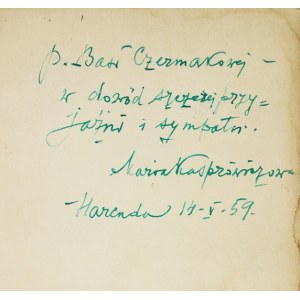 p. Basi Czermakowej –
w dowód szczerej przy=
jaźni i sympatii.
Maria Kasprowiczowa
Harenda 14-V-59.